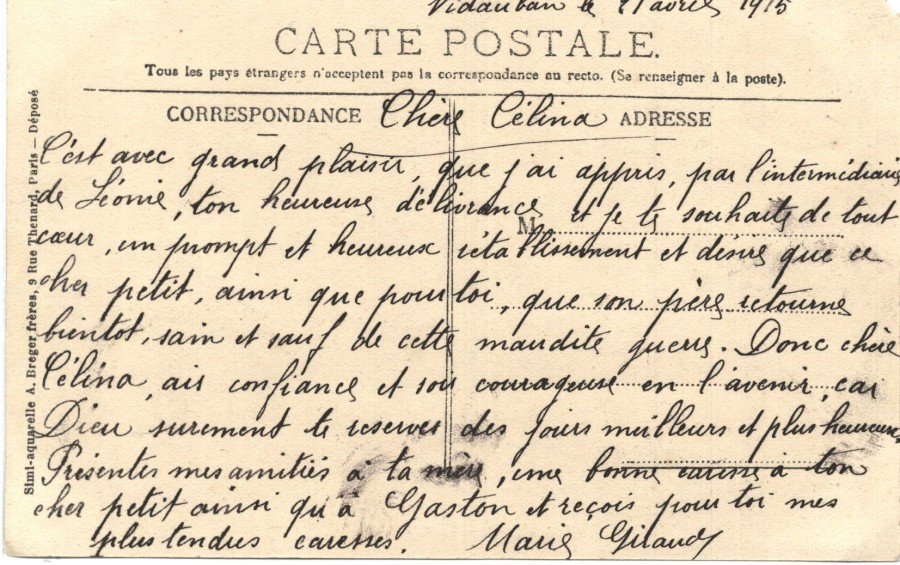 Vidauban le 21 avril 1915
CARTE POSTALE.
Tous les pays étrangers n'acceptent pas la correspondance au recto. (Se renseigner à la poste).
CORRESPONDANCE Chère Célina ADRESSE
C'est avec grand plaisir, que j'ai appris, par l'intermédiaire
de Léonie, ton heureuse délivrance et je te souhaite de tout
M
cœur, un prompt et heureux rétablissement et désire que ce
cher petit, ainsi que pour toi, que son père retourne
bientot, sain et sauf de cette maudite guerre. Donc chère
Célina, aie confiance et sois courageuse en l'avenir, car
Dieu surement te reserves des jours meilleurs et plus heureux.
Présentes mes amitiés à ta mère, une bonne caresse à ton
cher petit ainsi qu'à Gaston et reçois pour toi mes
plus tendres caresses. Marie Giraud
Simi-aquarelle A. Breger frères, 9 Rue Thenard, Paris — Déposé